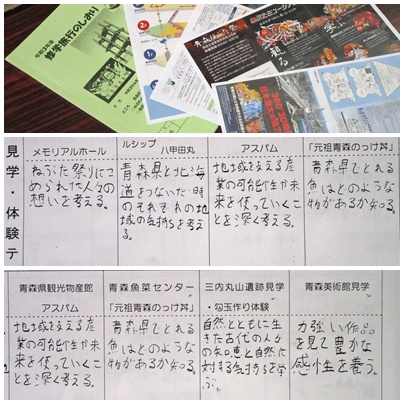 修学旅行のしおり
見学・体験テ
メモリアルホール
ねぶた祭りにこ
められた人々の
想いを考える。
ルシップ 八甲田丸
青森県と北海
道をつないだ時
のそれぞれの地
域の気持ちを考え
る。
アスパム
地域を支える産
業の可能性や未
来を使っていくこ
とを深く考える。
「元祖青森のっけ丼」
青森県でとれる
魚はどのような
物があるか知る。
青森県観光物産館
アスパム
地域を支える産
業の可能性や未
来を使っていくこ
とを深く考える。
青森魚菜センター
「元祖青森のっけ丼」
青森県でとれる
魚はどのような
物があるか知る。
三内丸山遺跡見学
・勾玉作り体験
自然とともに生
きた古代の人々
の知恵と自然に
対する気持ちを学
ぶ。
青森美術館見学
力強い作品
を見て豊かな
感性を養う。